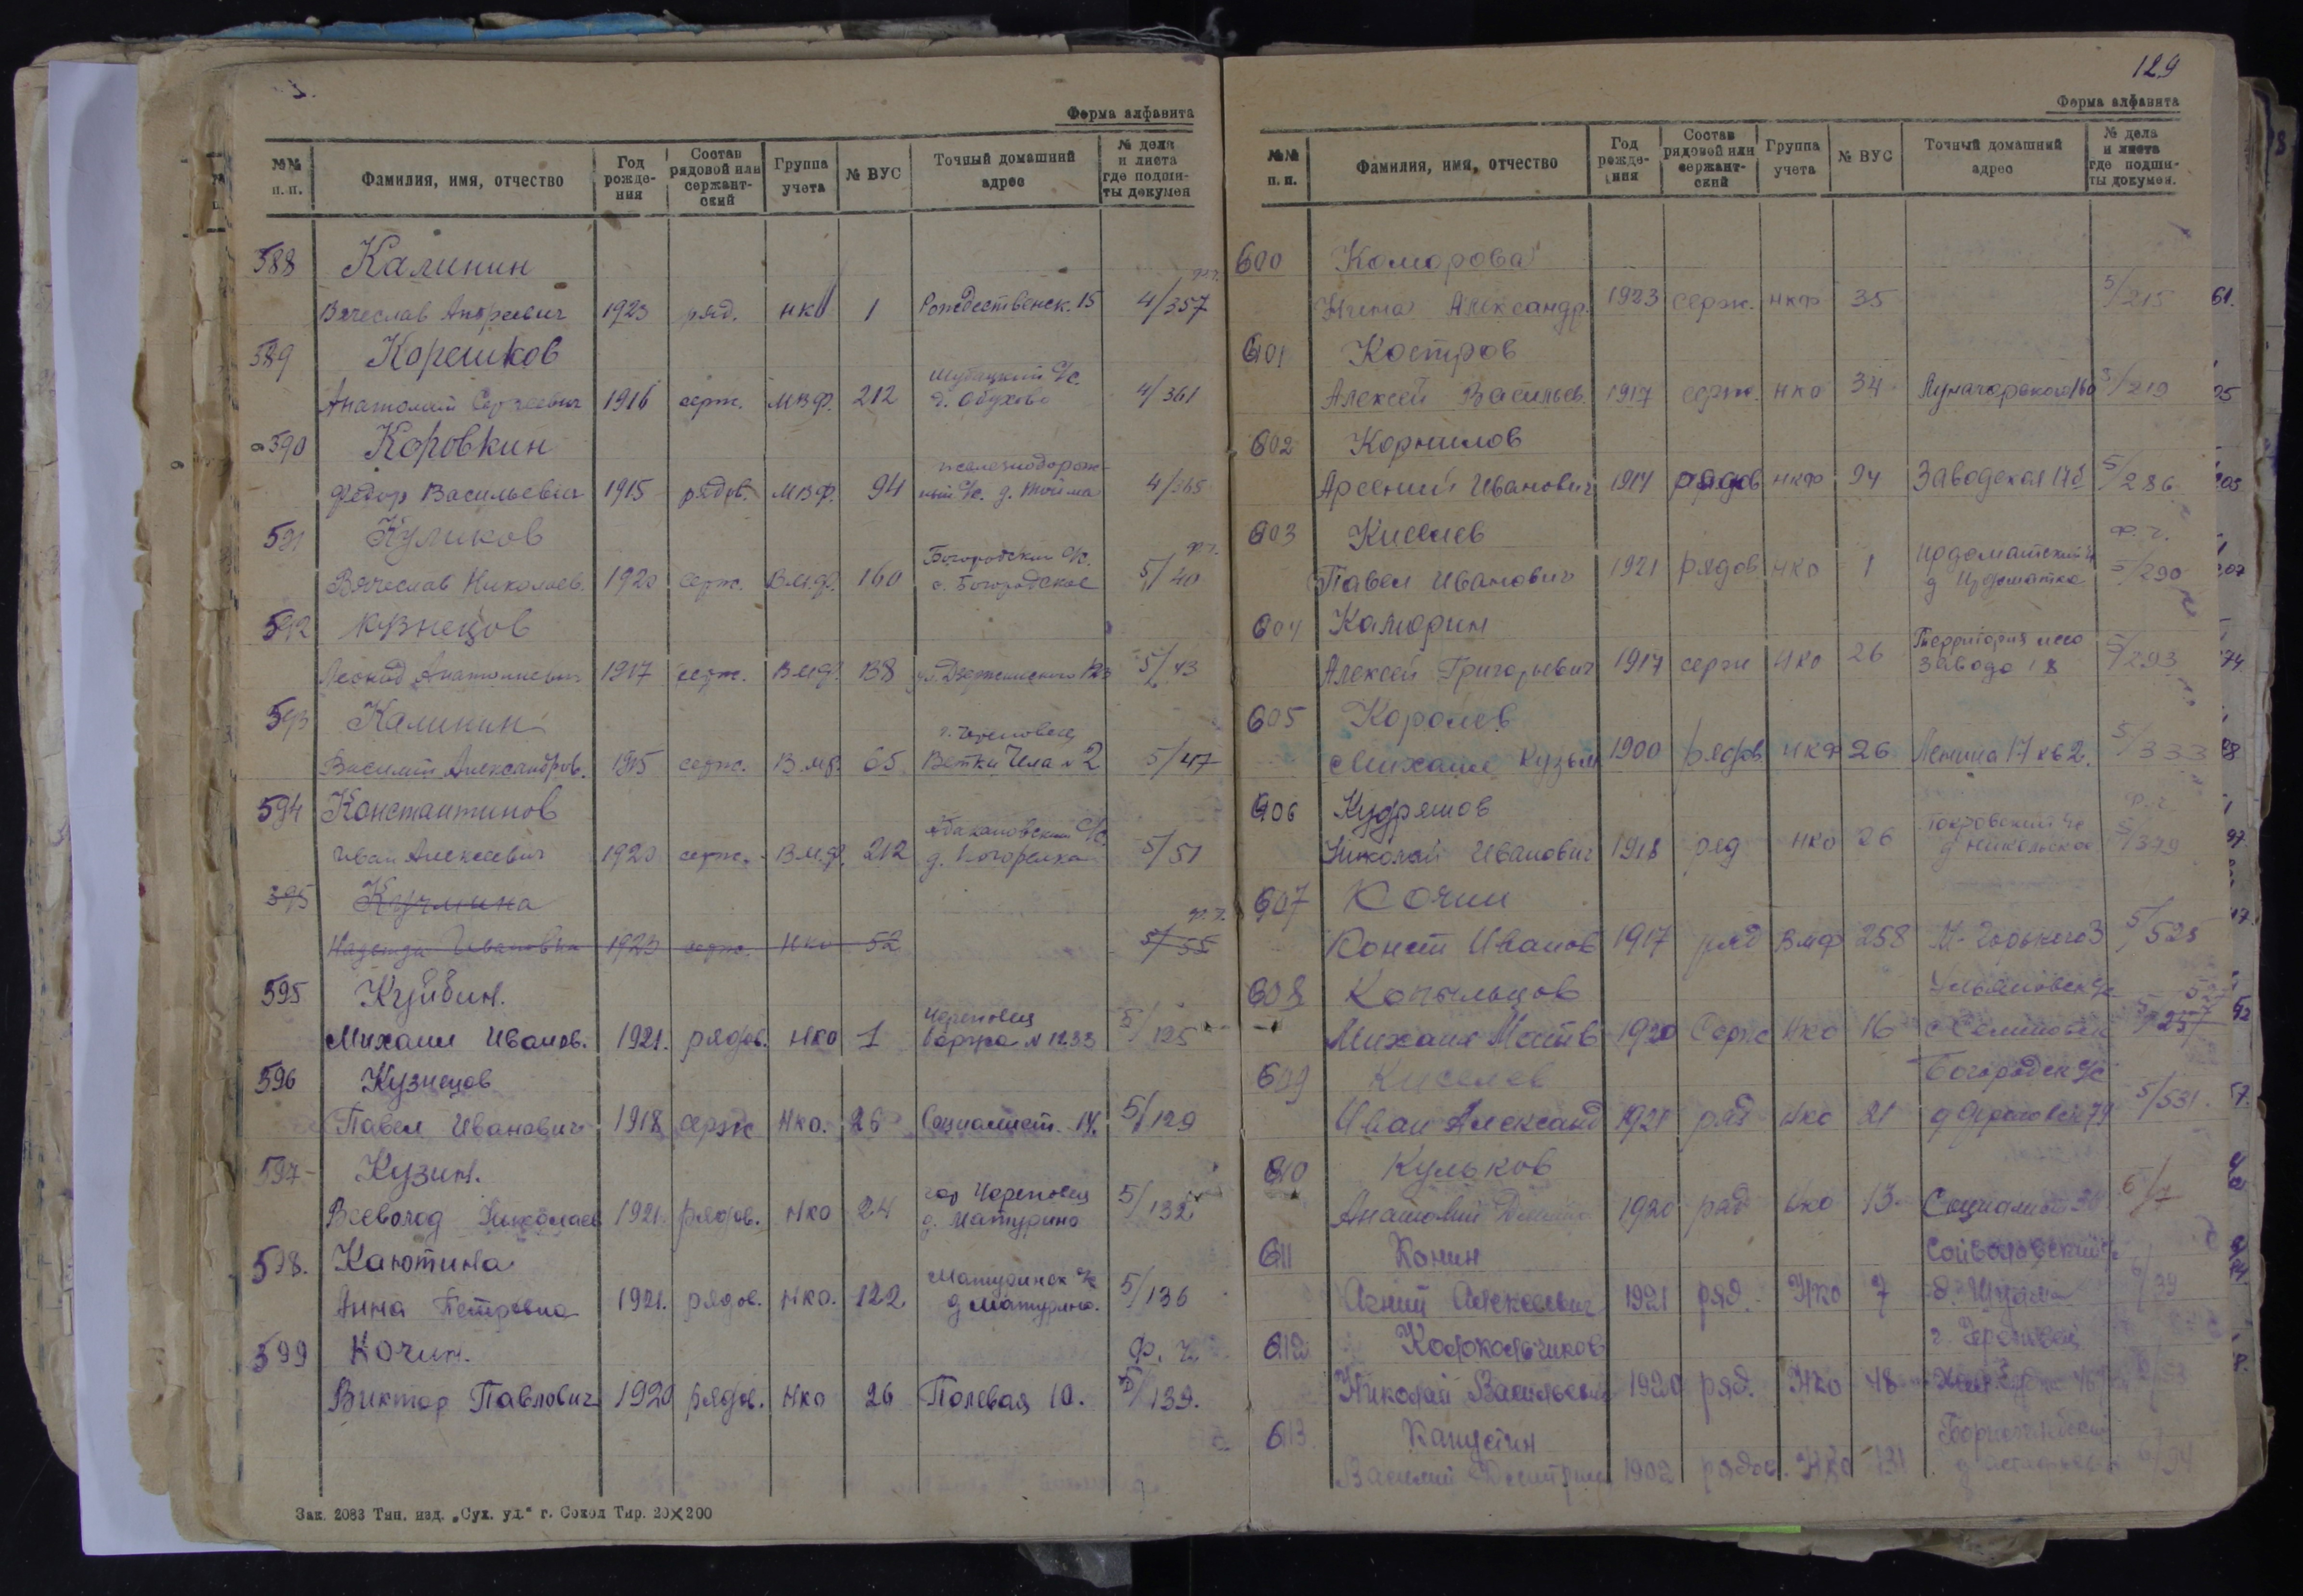 Форма алфавита
№№ п. п.
Фамилия, имя, отчество
Год рожде- ния
Состав рядовой или сержант- ский
Группа учета
№ ВУС
Точный домашний адрес
№ дела и листа где подши- ты докумен
588 Калинин
Вячеслав Андреевич 1923 ряд. нко 1 Рождественск. 15 4/357
589 Корешков
Анатолий Сергеевич 1916 серж. МВФ. 212 д. Обухово 4/361
590 Коровкин
Федор Васильевич 1915 рядов. МВФ. 94 железнодорож- ный С/с. д. 4/365
591 Куликов
Богородский С/с.
Вячеслав Николаев. 1920 серж. В.М.Ф. 160 с. Богородское 5/40
592 Кузнецов
Леонид Анатолиевич 1917 серж. ВМФ. 138 5/43
593 Калинин
г. Череповец
Василий Александров. 1915 серж. В.МФ. 65 №2 5/47
594 Константинов
Абакановский С/с
Иван Алексеевич 1920 серж. В.М.Ф. 212 д. Погорелка 5/51
595
Надежда Ивановна 1923 серж. нко 52 5/55
595 Куйбин.
Череповец
Михаил Иванов. 1921. рядов. нко 1 баржа №1233 5/125
596 Кузнецов
Павел Иванович 1918 серж нко. 26 Социалист. 14. 5/129
597- Кузин.
гор Череповец
Всеволод Николаев 1921. рядов. нко 24 д. Матурино 5/132
598. Каютина
Матуринск с/с
Анна Петровна 1921. рядов. нко. 122 д Матурино. 5/136
599 Кочин.
Ф. 2
Виктор Павлович 1920 рядов. нко 26 Полевая 10. 5/139.
Зак. 2083 Тип. изд. „Сух. уд.“ г. Сокол Тир. 20×200
129
Форма алфавита
№№ п. п.
Фамилия, имя, отчество
Год рожде- ния
Состав рядовой или сержант- ский
Группа учета
№ ВУС
Точный домашний адрес
№ дела и листа где подши- ты докумен.
600 Комарова
Нина Александр. 1923 серж. нкф 35 5/215
601 Костров
Алексей Васильев. 1917 серж. нко 34 5/219
602 Корнилов
Арсений Иванович 1917 рядов нкф 94 Заводская 5/286
603 Киселев
Ф. 2.
Павел Иванович 1921 рядов нко 1 5/290
604 Каморин
Территория лесо
Алексей Григорьевич 1917 серж нко 26 завода 5/293
605 Королев
Михаил Кузьм 1900 рядов нкф 26 Ленина 17 кв 2. 5/333
606 Кудряшов
Покровский с/с
Николай Иванович 1918 ряд нко 26 д Никольское 5/379
607 Кочин
Конст Иванов 1917 ряд ВМФ 258 М-Горького 3 5/525
608 Копыльцов
Ульяновск с/с
Михаил Матв 1920 Серж нко 16
609 Киселев
Богородск с/с
Иван Александ 1921 ряд нко 21 5/531.
610 Кульков
Анатолий 1920 ряд нко 13. Социалист 6/7
611 Конин
Агний Алексеевич 1921 ряд. НКО 7 6/39
612 Колокольчиков
г. Череповец
Николай Васильевич 1920 ряд. НКО 48
613 Капустин
Василий Дмитриев 1902 рядов. НКО 131